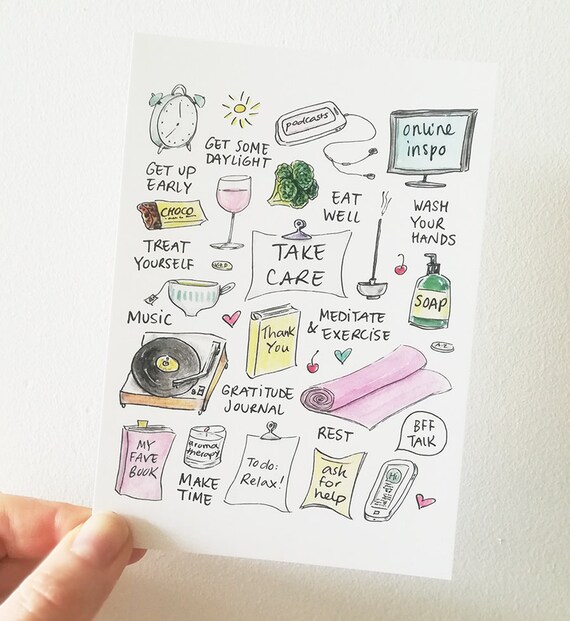 podcasts
online
inspo
GET SOME
DAYLIGHT
GET UP
EARLY
CHOCO
EAT
WELL
WASH
YOUR
HANDS
TREAT
YOURSELF
TAKE
CARE
SOAP
MUSIC
Thank
You
MEDITATE
& EXERCISE
A-Z
GRATITUDE
JOURNAL
REST
BFF
TALK
MY
FAVE
BOOK
aroma
therapy
MAKE
TIME
To do:
Relax!
ask
for
help
Hi